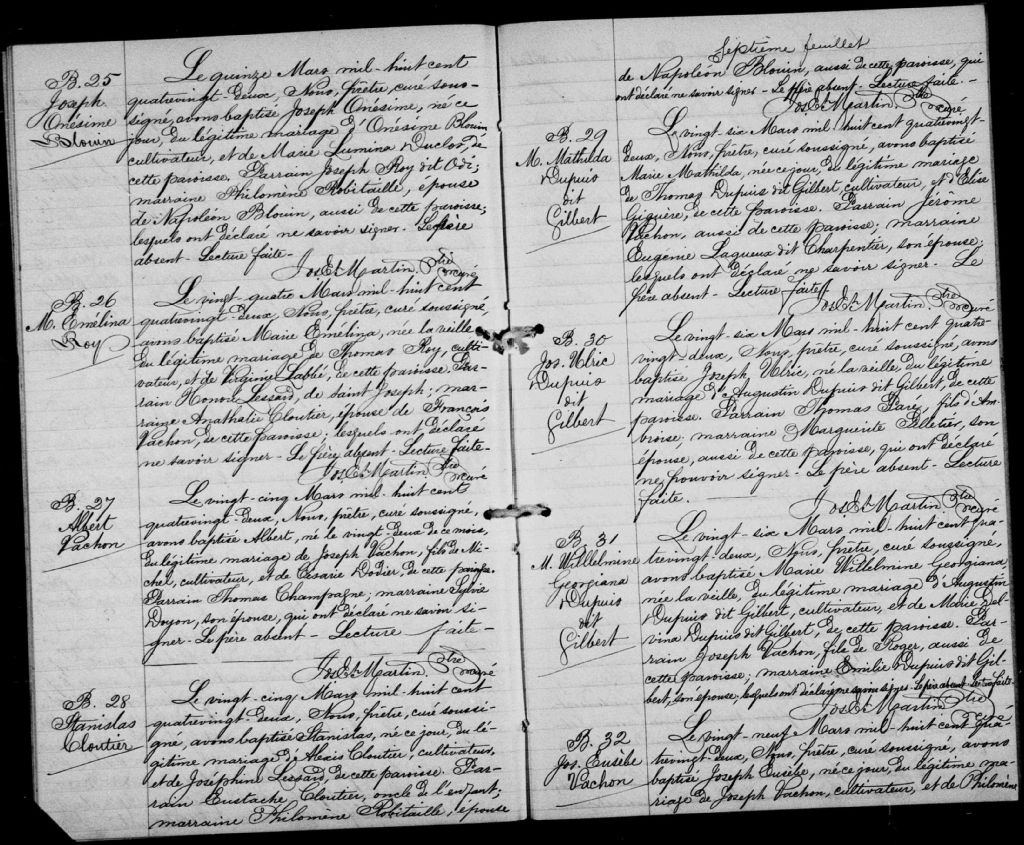 B. 25
Joseph
Onésime
Blouin
Le quinze Mars mil-huit cent
quatrevingt-deux, Nous, prêtre, curé sous-
signé, avons baptisé Joseph Onésime, né ce
jour, du légitime mariage d'Onésime Blouin
cultivateur, et de Marie Lumina Duclos, de
cette paroisse. Parrain Joseph Roy dit Odi;
marraine Philomène Robitaille, épouse
de Napoléon Blouin, aussi de cette paroisse;
lesquels ont déclaré ne savoir signer. Le père
absent - Lecture faite -
Jos Et Martin Ptre
curé
B. 26
M. Emélina
Roy
Le vingt-quatre Mars mil-huit cent
quatrevingt-deux, Nous, prêtre, curé soussigné,
avons baptisé Marie Emélina, née la veille
du légitime mariage de Thomas Roy, culti-
vateur, et de Virginie Labbé, de cette paroisse. Par-
rain Honoré Lessard, de saint Joseph; mar-
raine Anathalie Cloutier, épouse de François
Vachon, de cette paroisse; lesquels ont déclaré
ne savoir signer - Le père absent - Lecture faite -
Jos Et Martin Ptre
curé
B. 27
Albert
Vachon
Le vingt-cinq Mars mil-huit cent
quatrevingt-deux, Nous, prêtre, curé soussigné,
avons baptisé Albert, né le vingt-deux de ce mois,
du légitime mariage de Joseph Vachon, fils de Mi-
chel, cultivateur, et de Césarie Dodier, de cette paroisse.
Parrain Thomas Champagne; marraine Sylvie
Doyon, son épouse, qui ont déclaré ne savoir si-
gner - Le père absent - Lecture faite -
Jos Et Martin Ptre
curé
B. 28
Stanislas
Cloutier
Le vingt-cinq Mars mil-huit cent
quatrevingt-deux, Nous, prêtre, curé soussi-
gné, avons baptisé Stanislas, né ce jour, du lé-
gitime mariage de Alexis Cloutier, cultivateur,
et de Joséphine Lessard, de cette paroisse. Par-
rain Eustache Cloutier, oncle de l'enfant;
marraine Philomène Robitaille, épouse
Septième feuillet
de Napoléon Blouin, aussi de cette paroisse, qui
ont déclaré ne savoir signer - Le père absent - Lecture faite -
Jos Et Martin Ptre
curé
B. 29
M. Mathilda
Dupuis
dit
Gilbert
Le vingt-six Mars mil-huit cent quatrevingt-
deux, Nous, prêtre, curé soussigné, avons baptisé
Marie Mathilda, née ce jour, du légitime mariage
de Thomas Dupuis dit Gilbert cultivateur, & d'Elise
Giguère, de cette paroisse. Parrain Jérôme
Vachon, aussi de cette paroisse; marraine
Eugénie Lagueux dit Charpentier, son épouse;
lesquels ont déclaré ne savoir signer. - Le
père absent - Lecture faite
Jos Et Martin Ptre
curé
B. 30
Jos. Ulric
Dupuis
dit
Gilbert
Le vingt-six Mars mil-huit cent quatre-
vingt-deux, Nous, prêtre, curé soussigné, avons
baptisé Joseph Ulric, né la veille du légitime
mariage d'Augustin Dupuis dit Gilbert, de cette
paroisse. Parrain Thomas Paré, fils d'Am-
broise; marraine Marguerite Pelletier, son
épouse, aussi de cette paroisse, qui ont déclaré
ne pouvoir signer - Le père absent - Lecture
faite.
Jos Et Martin Ptre
curé
B. 31
M. Wilhelmine
Georgiana
Dupuis
dit
Gilbert
Le vingt-six Mars mil-huit cent qua-
trevingt deux, Nous, prêtre, curé soussigné,
avons baptisé Marie Wilhelmine Georgiana,
née la veille, du légitime mariage d'Augustin
Dupuis dit Gilbert, cultivateur, et de Marie Del-
vina Dupuis dit Gilbert, de cette paroisse. Par-
rain Joseph Vachon, fils de Roger, aussi de
cette paroisse; marraine Emilie Dupuis dit Gil-
bert, son épouse, lesquels ont déclaré ne savoir signer - Le père absent - Lecture faite -
Jos Et Martin Ptre
curé
B. 32
Jos. Eusèbe
Vachon
Le vingt-neuf Mars mil-huit cent qua-
trevingt deux, Nous, prêtre, curé soussigné, avons
baptisé Joseph Eusèbe, né ce jour, du légitime ma-
riage de Joseph Vachon, cultivateur, et de Philomène